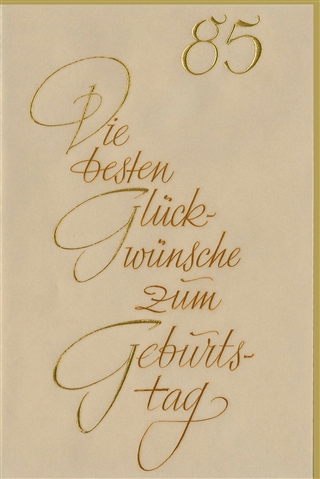 85
Die
besten
Glück-
wünsche
zum
Geburts-
tag